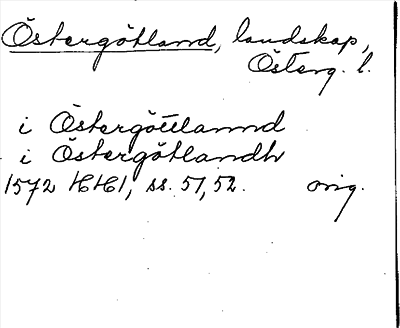 Östergötland, landskap,
Österg. l.
i Östergöttlannd
i Östergötlandh
1572 HH1, ss. 51, 52. orig.